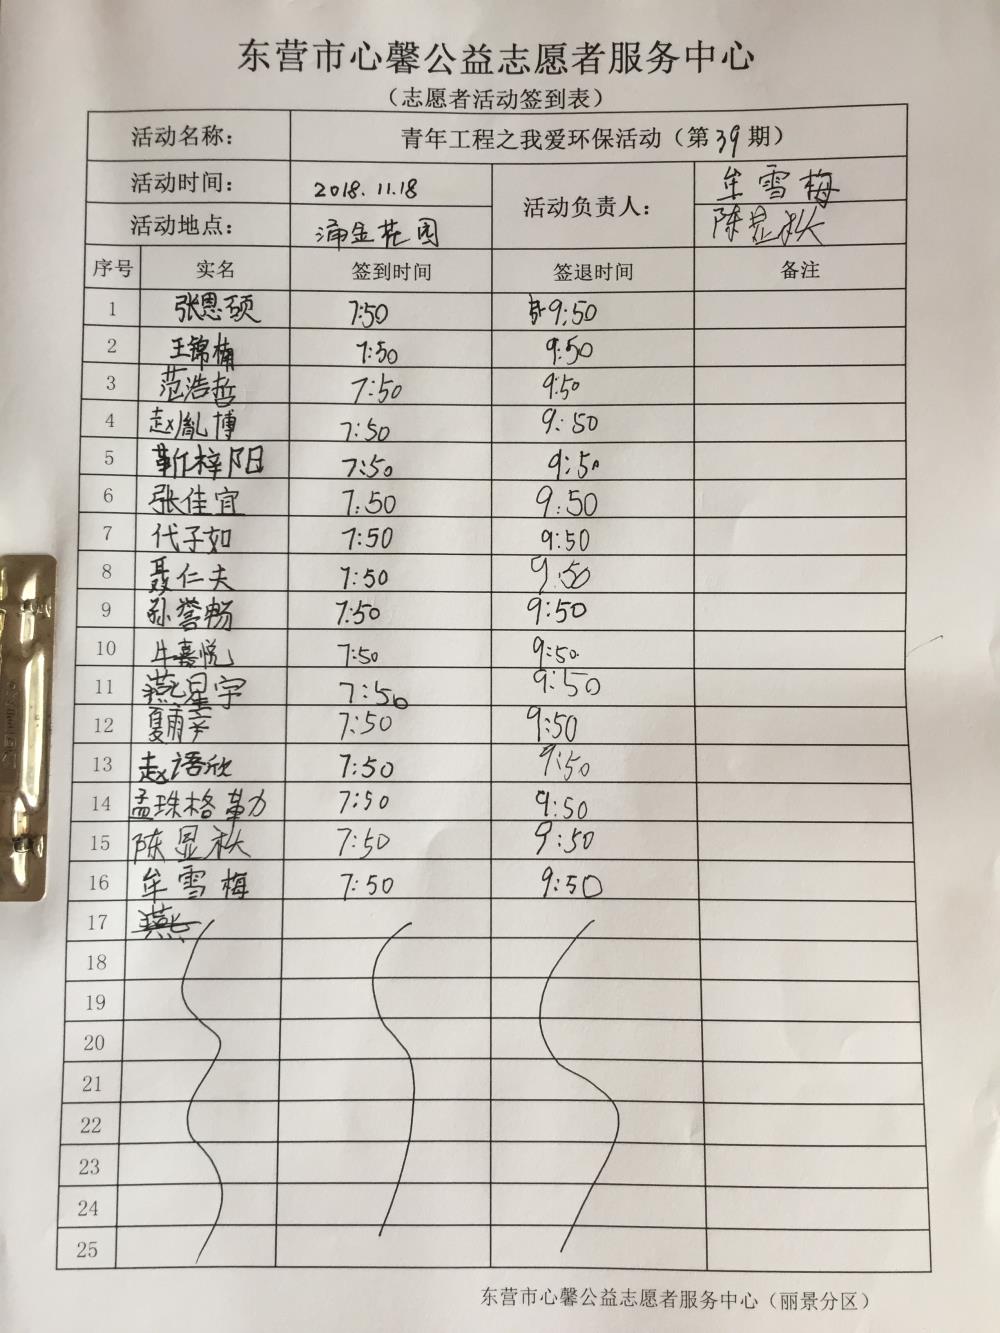 东营市心馨公益志愿者服务中心
（志愿者活动签到表）
活动名称： 青年工程之我爱环保活动（第39期）
活动时间： 2018.11.18 活动负责人： 牟雪梅
活动地点： 涌金花园 陈显秋
序号 实名 签到时间 签退时间 备注
1 张恩硕 7:50 9:50
2 王锦楠 7:50 9:50
3 范浩哲 7:50 9:50
4 赵胤博 7:50 9:50
5 靳梓阳 7:50 9:50
6 张佳宜 7:50 9:50
7 代子如 7:50 9:50
8 聂仁夫 7:50 9:50
9 孙誉畅 7:50 9:50
10 牛嘉悦 7:50 9:50
11 燕星宇 7:50 9:50
12 夏雨辛 7:50 9:50
13 赵语欣 7:50 9:50
14 孟珠格勒 7:50 9:50
15 陈显秋 7:50 9:50
16 牟雪梅 7:50 9:50
17 燕
18
19
20
21
22
23
24
25
东营市心馨公益志愿者服务中心（丽景分区）